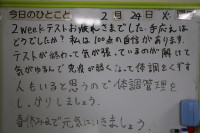 今日のひとこと 2月24日
2weekテストお疲れさまでした 手応えは
どうでしたか？私は 自信があります
テストが終わって気が張っているのが解けて
気がゆるんで免疫が弱くなって体調をくずす
人もいると思うので体調管理を
しっかりしましょう。
春休みまで元気にいきましょう